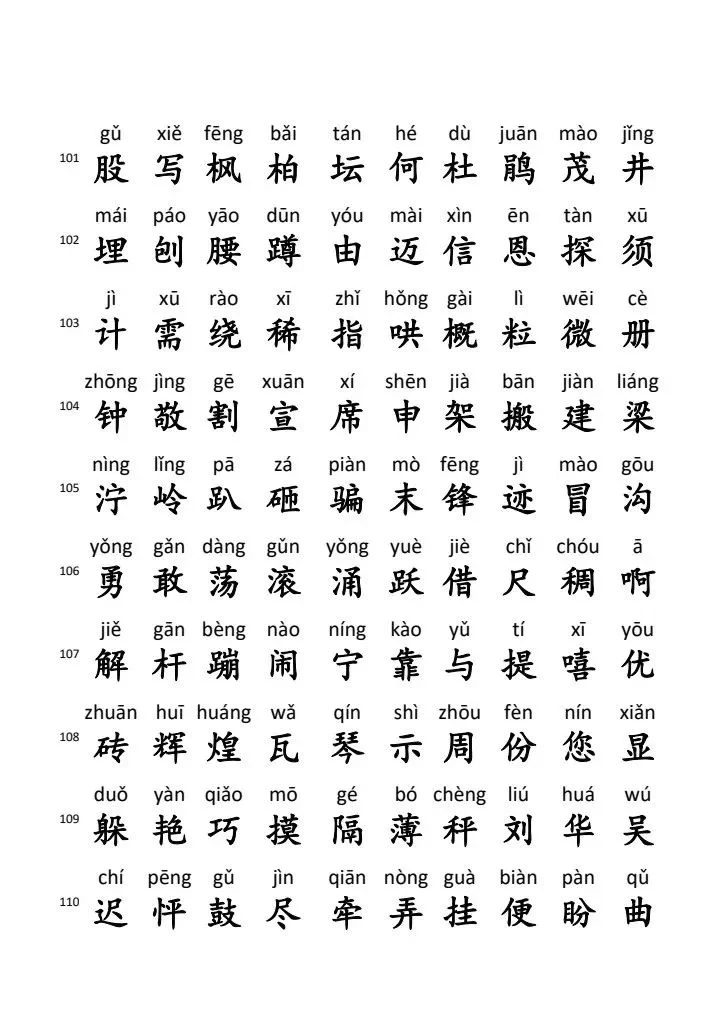 gǔ xiě fēng bǎi tán hé dù juān mào jǐng
101 股 写 枫 柏 坛 何 杜 鹃 茂 井
mái páo yāo dūn yóu mài xìn ēn tàn xū
102 埋 刨 腰 蹲 由 迈 信 恩 探 须
jì xū rào xī zhǐ hǒng gài lì wēi cè
103 计 需 绕 稀 指 哄 概 粒 微 册
zhōng jìng gē xuān xí shēn jià bān jiàn liáng
104 钟 敬 割 宣 席 申 架 搬 建 梁
nìng lǐng pā zá piàn mò fēng jì mào gōu
105 泞 岭 趴 砸 骗 末 锋 迹 冒 沟
yǒng gǎn dàng gǔn yǒng yuè jiè chǐ chóu ā
106 勇 敢 荡 滚 涌 跃 借 尺 稠 啊
jiě gān bèng nào níng kào yǔ tí xī yōu
107 解 杆 蹦 闹 宁 靠 与 提 嘻 优
zhuān huī huáng wǎ qín shì zhōu fèn nín xiǎn
108 砖 辉 煌 瓦 琴 示 周 份 您 显
duǒ yàn qiǎo mō gé bó chèng liú huá wú
109 躲 艳 巧 摸 隔 薄 秤 刘 华 吴
chí pēng gǔ jìn qiān nòng guà biàn pàn qǔ
110 迟 怦 鼓 尽 牵 弄 挂 便 盼 曲